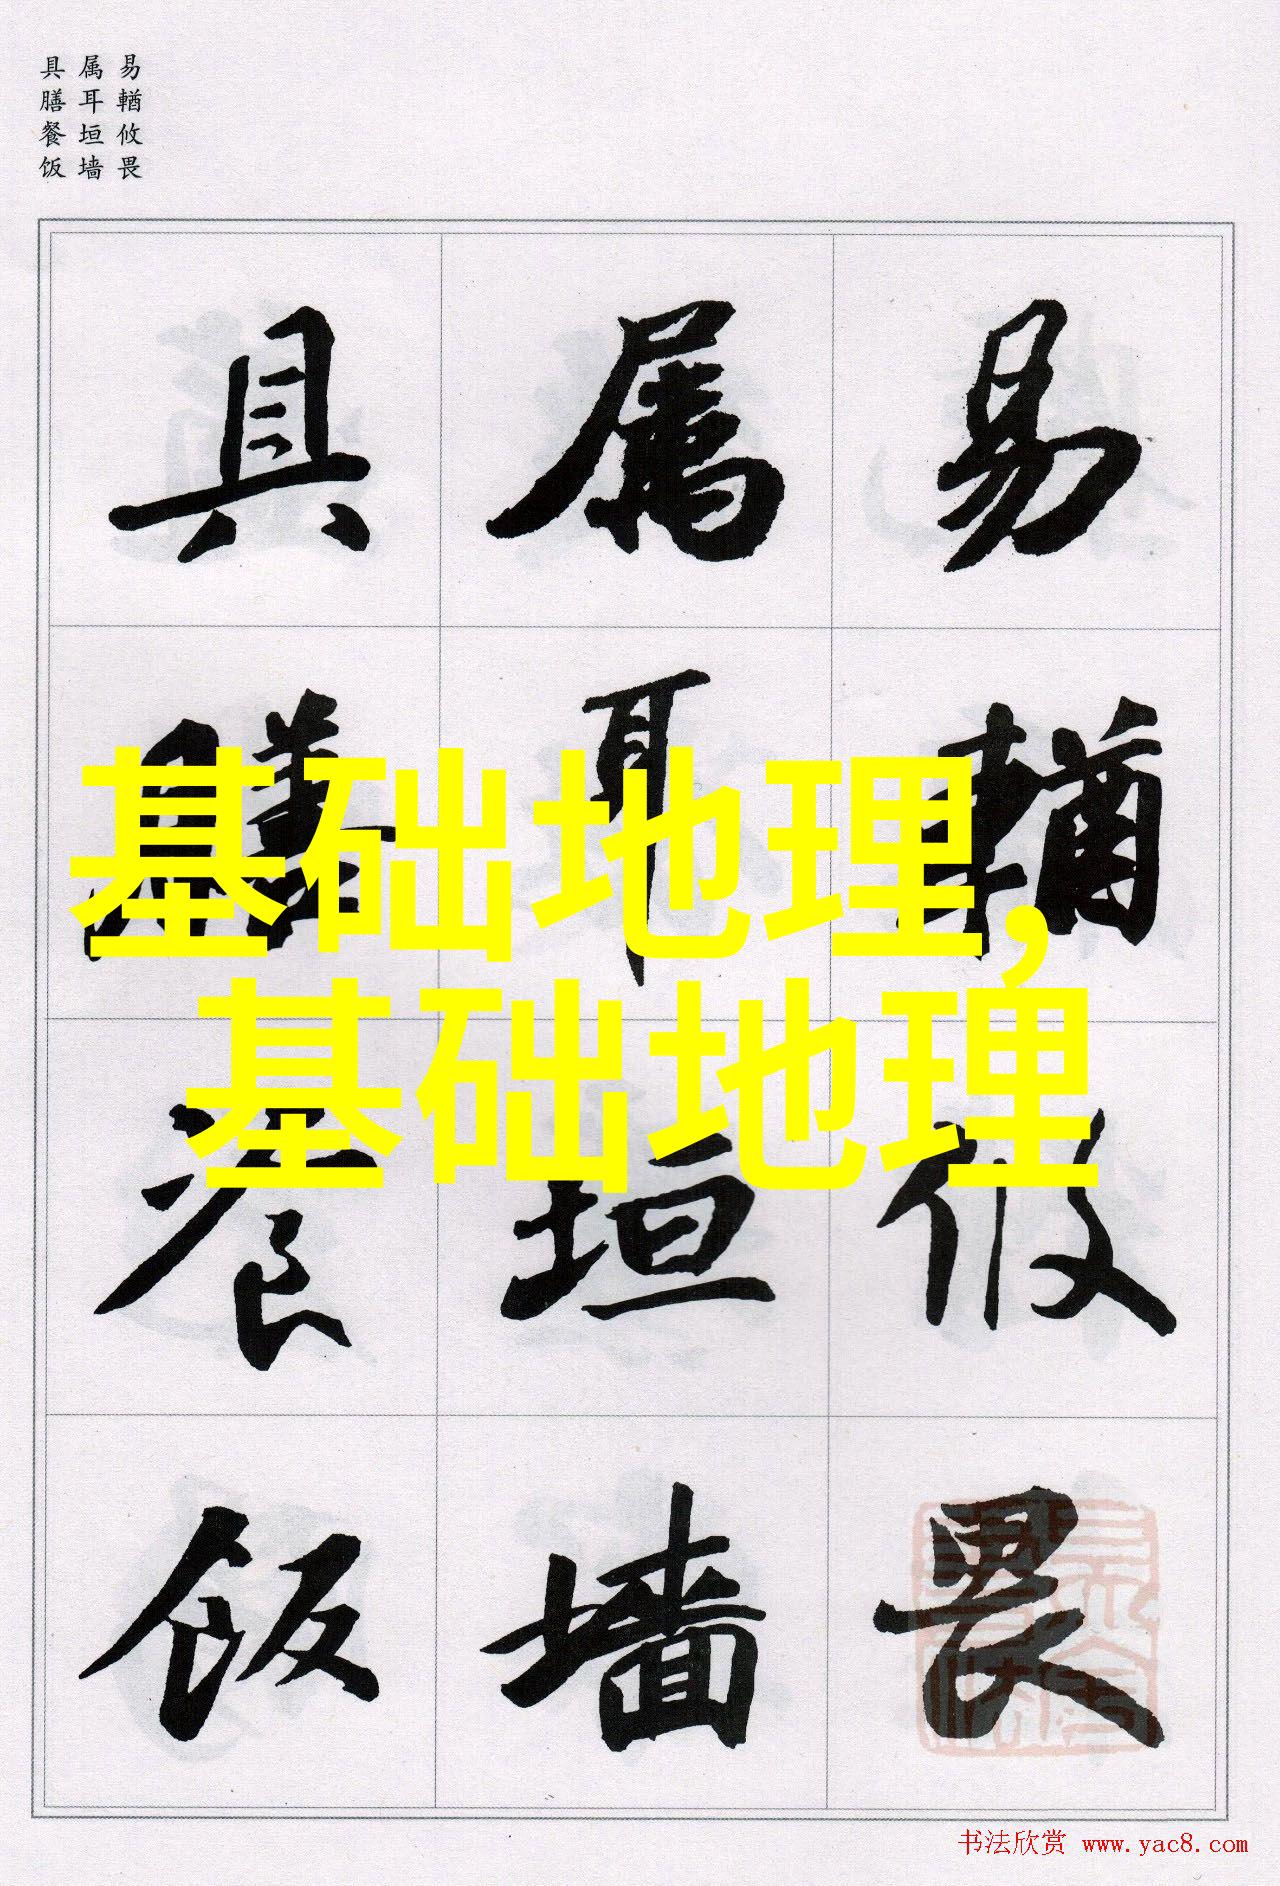 易輶攸畏
属耳垣墙
具膳餐饭
易輶攸畏
属耳垣墙
具膳飡饭
基础地理,
基础地理
书法欣赏 www.yac8.com